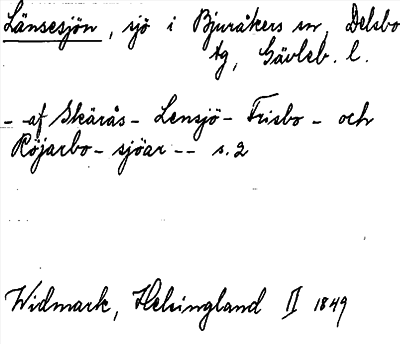 Länsesjön, sjö i Bjuråkers sn, Delsbo
tg, Gävleb. l.
- - af Skärås- Lensjö- Frisbo- och
Röjarbo- sjöar -- s. 2
Widmark, Helsingland II 1849